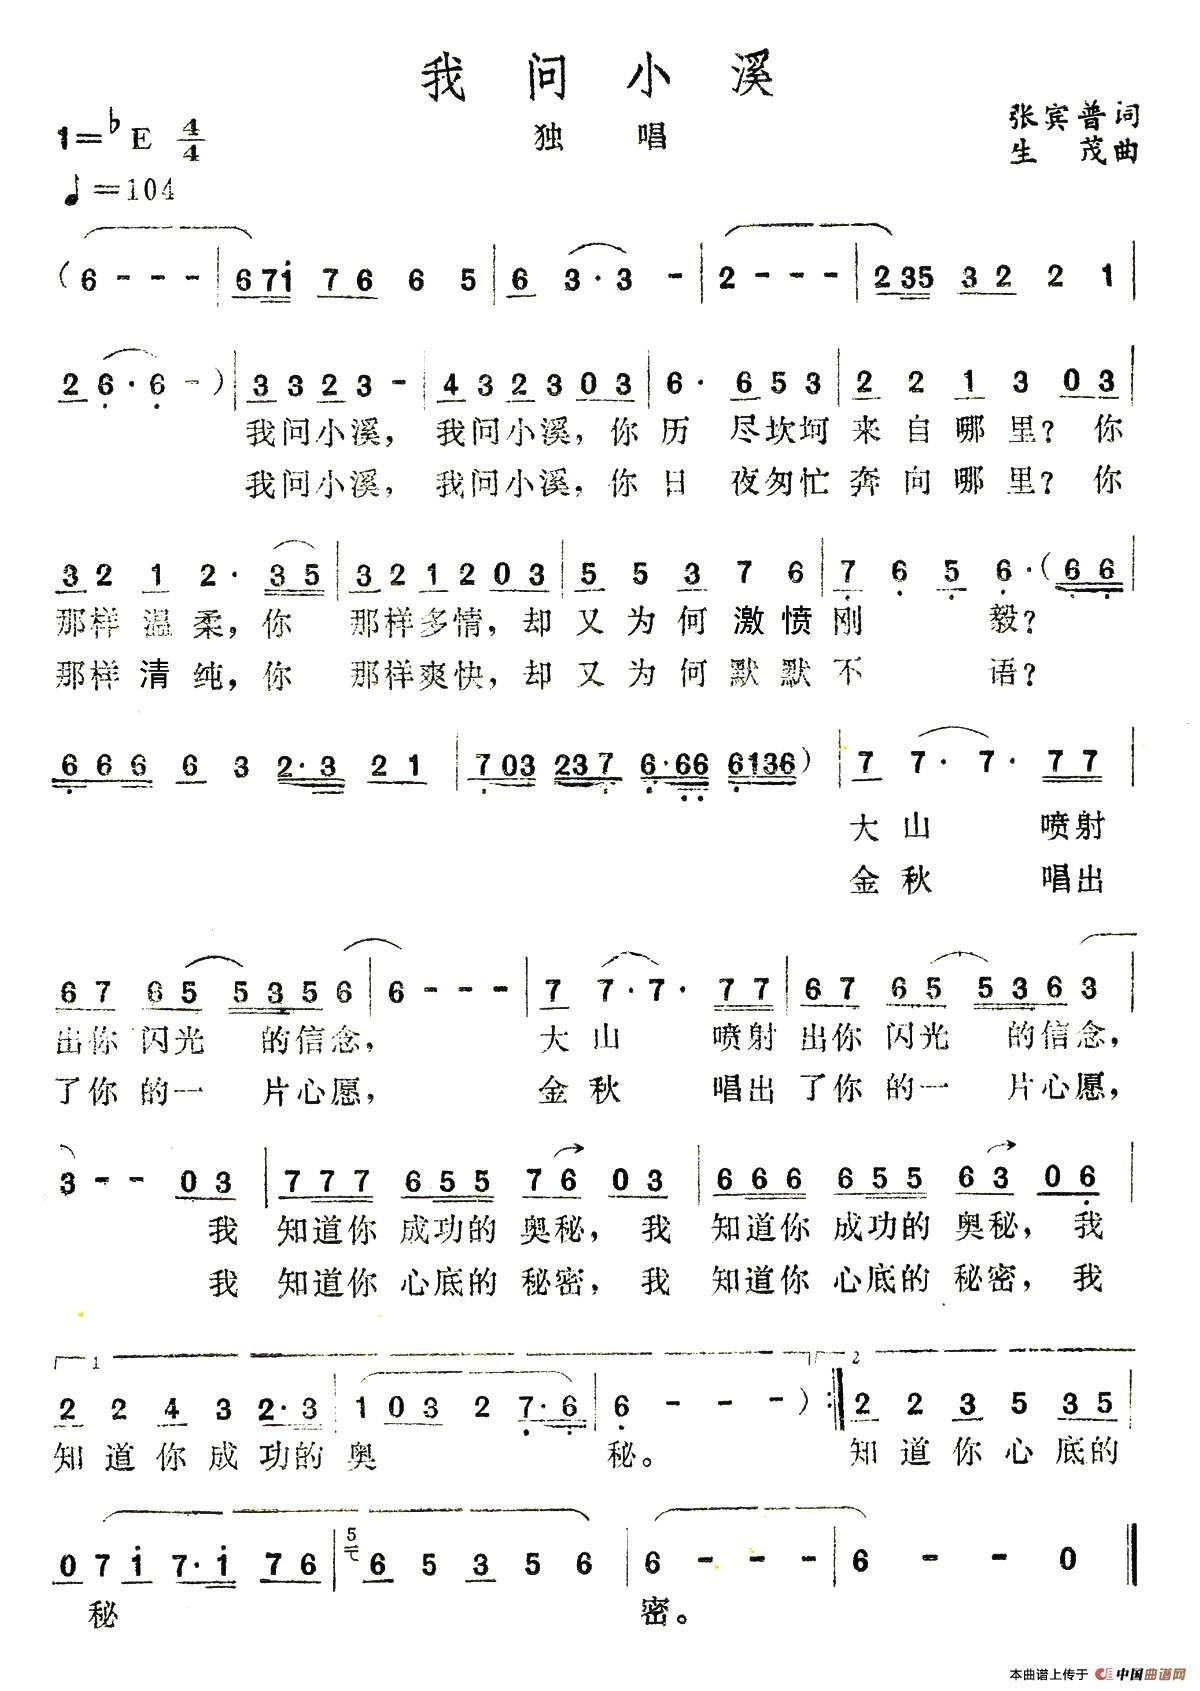 我问小溪
1=♭E 4/4
独唱
张宾普词
生茂曲
♩=104
(6 - - - | 671 76 6 5 | 6 3·3 - | 2 - - - | 235 32 2 1 |
2 6·6 -) | 3323 - | 432303 | 6· 653 | 2 2 1 3 03 |
我问小溪, 我问小溪, 你历 尽坎坷 来自哪里? 你
我问小溪, 我问小溪, 你日 夜匆忙 奔向哪里? 你
32 1 2· 35 | 321203 | 5 5 3 7 6 | 7 6 5 6·(66 |
那样温柔, 你 那样多情, 却又为何激愤刚 毅?
那样清纯, 你 那样爽快, 却又为何默默不 语?
666 6 3 2·3 21 | 703 237 6·66 6136) | 7 7· 7· 77 |
大山 喷射
金秋 唱出
67 65 5356 | 6 - - - | 7 7·7· 77 | 67 65 5363 |
出你闪光 的信念, 大山 喷射出你闪光 的信念,
了你的一 片心愿, 金秋 唱出了你的一 片心愿,
3 - - 03 | 777 655 76 03 | 666 655 63 06 |
我 知道你成功的奥秘, 我 知道你成功的奥秘, 我
我 知道你心底的秘密, 我 知道你心底的秘密, 我
1 2
2 2 4 3 2·3 | 1 03 2 7·6 | 6 - - -) :| 2 2 3 5 35 |
知道你成功的奥 秘。 知道你心底的
5
0 7 1 7·1 76 | 6 5 3 5 6 | 6 - - - | 6 - - 0 ‖
秘 密。
本曲谱上传于 中国曲谱网